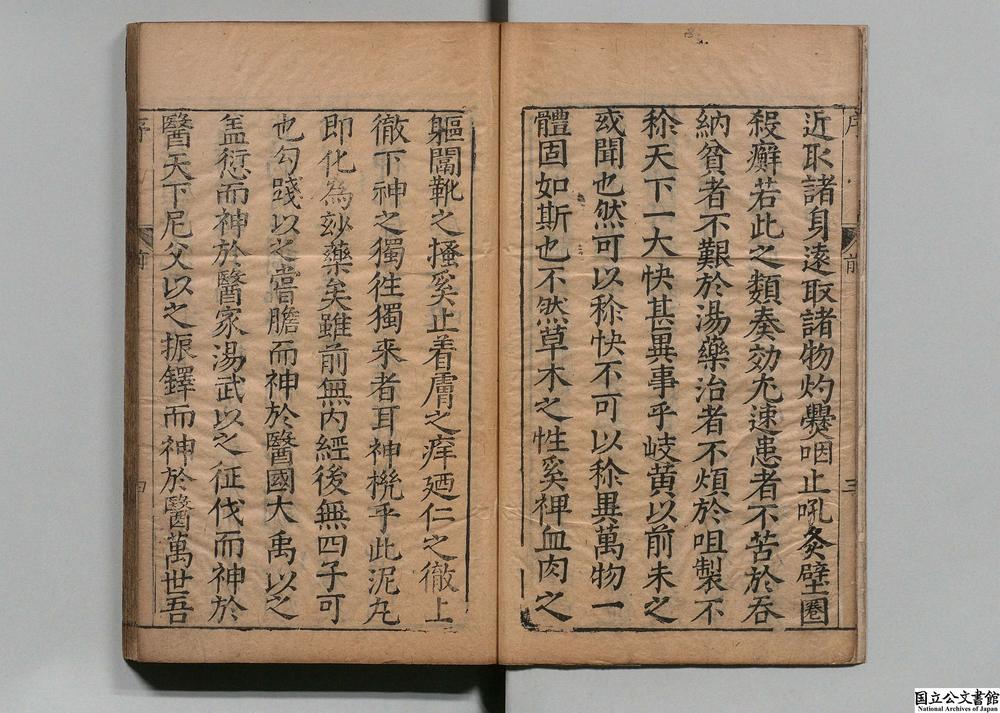 近取諸身遠取諸物灼爨咽止吼灸壁圈
殺癬若此之類奏効尤速患者不苦於吞
納貧者不艱於湯藥治者不煩於咀製不
称天下一大快甚異事乎岐黄以前未之
或聞也然可以称快不可以称異萬物一
體固如斯也不然草木之性奚禆血肉之
序
前
三
軀鬭靴之搔奚止着膚之痒廼仁之徹上
徹下神之獨徃獨來者耳神機乎此泥丸
即化為玅藥矣雖前無內經後無四子可
也勾踐以之嘗膽而神於醫國大禹以之
盖愆而神於醫家湯武以之征伐而神於
醫天下尼父以之振鐸而神於醫萬世吾
序
前
四
国立公文書館
National Archives of Japan